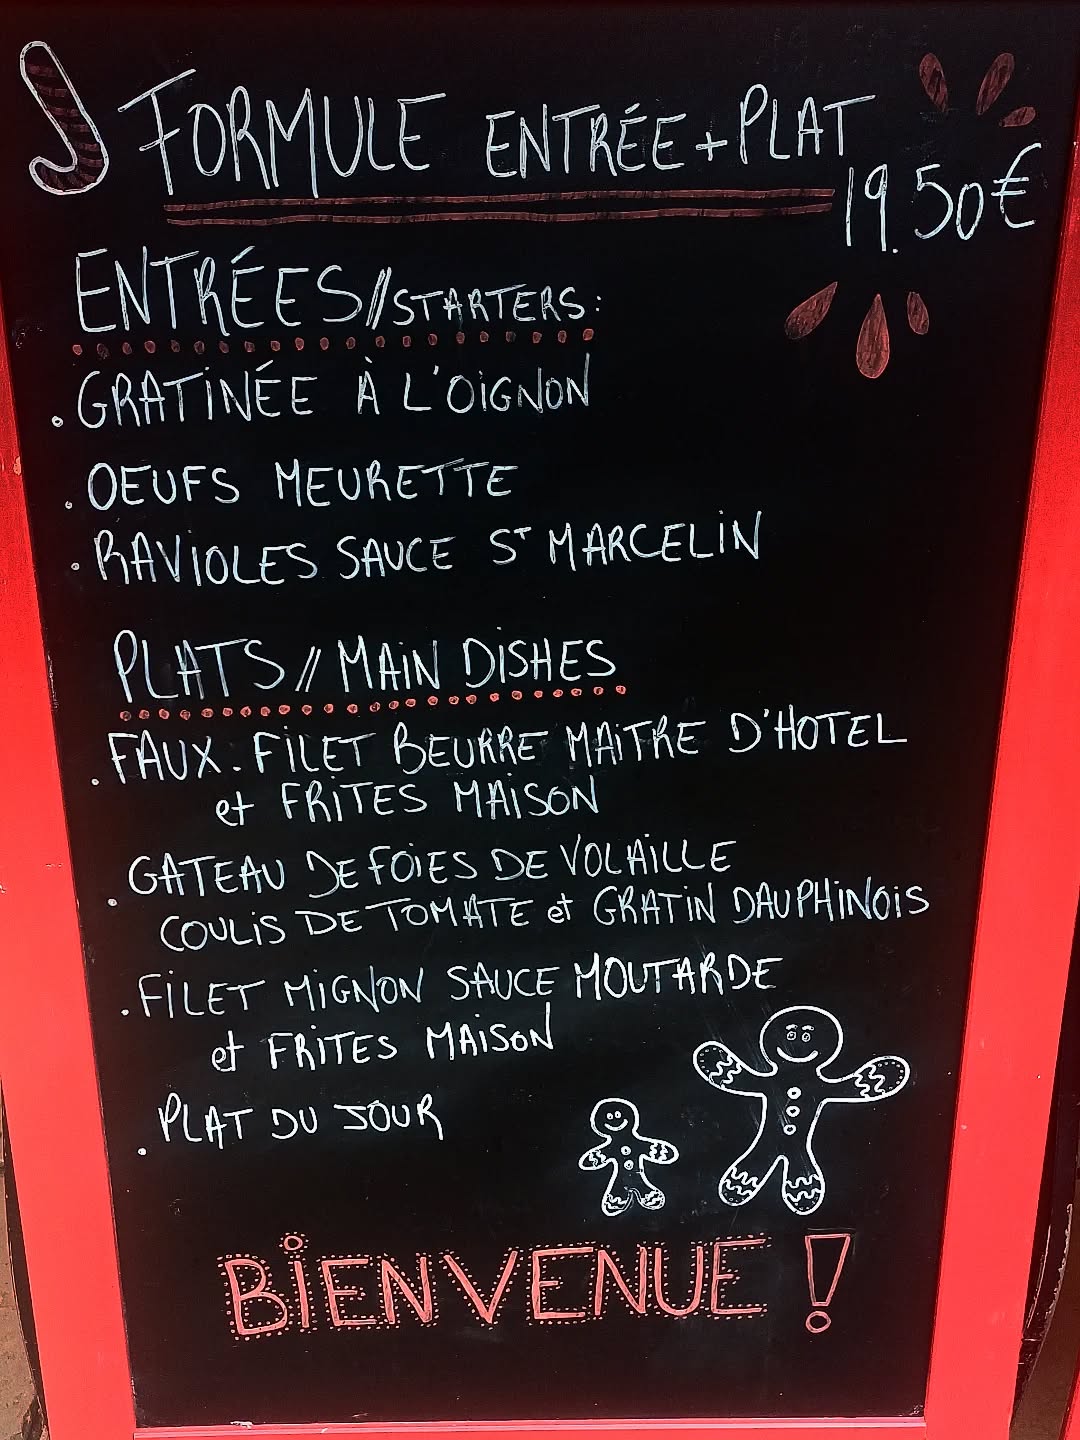 FORMULE ENTRÉE + PLAT
19.50€
ENTRÉES // STARTERS :
. GRATINÉE À L'OIGNON
. OEUFS MEURETTE
. RAVIOLES SAUCE ST MARCELIN
PLATS // MAIN DISHES
. FAUX-FILET BEURRE MAITRE D'HOTEL
et FRITES MAISON
. GATEAU DE FOIES DE VOLAILLE
COULIS DE TOMATE et GRATIN DAUPHINOIS
. FILET MIGNON SAUCE MOUTARDE
et FRITES MAISON
. PLAT DU JOUR
BIENVENUE !